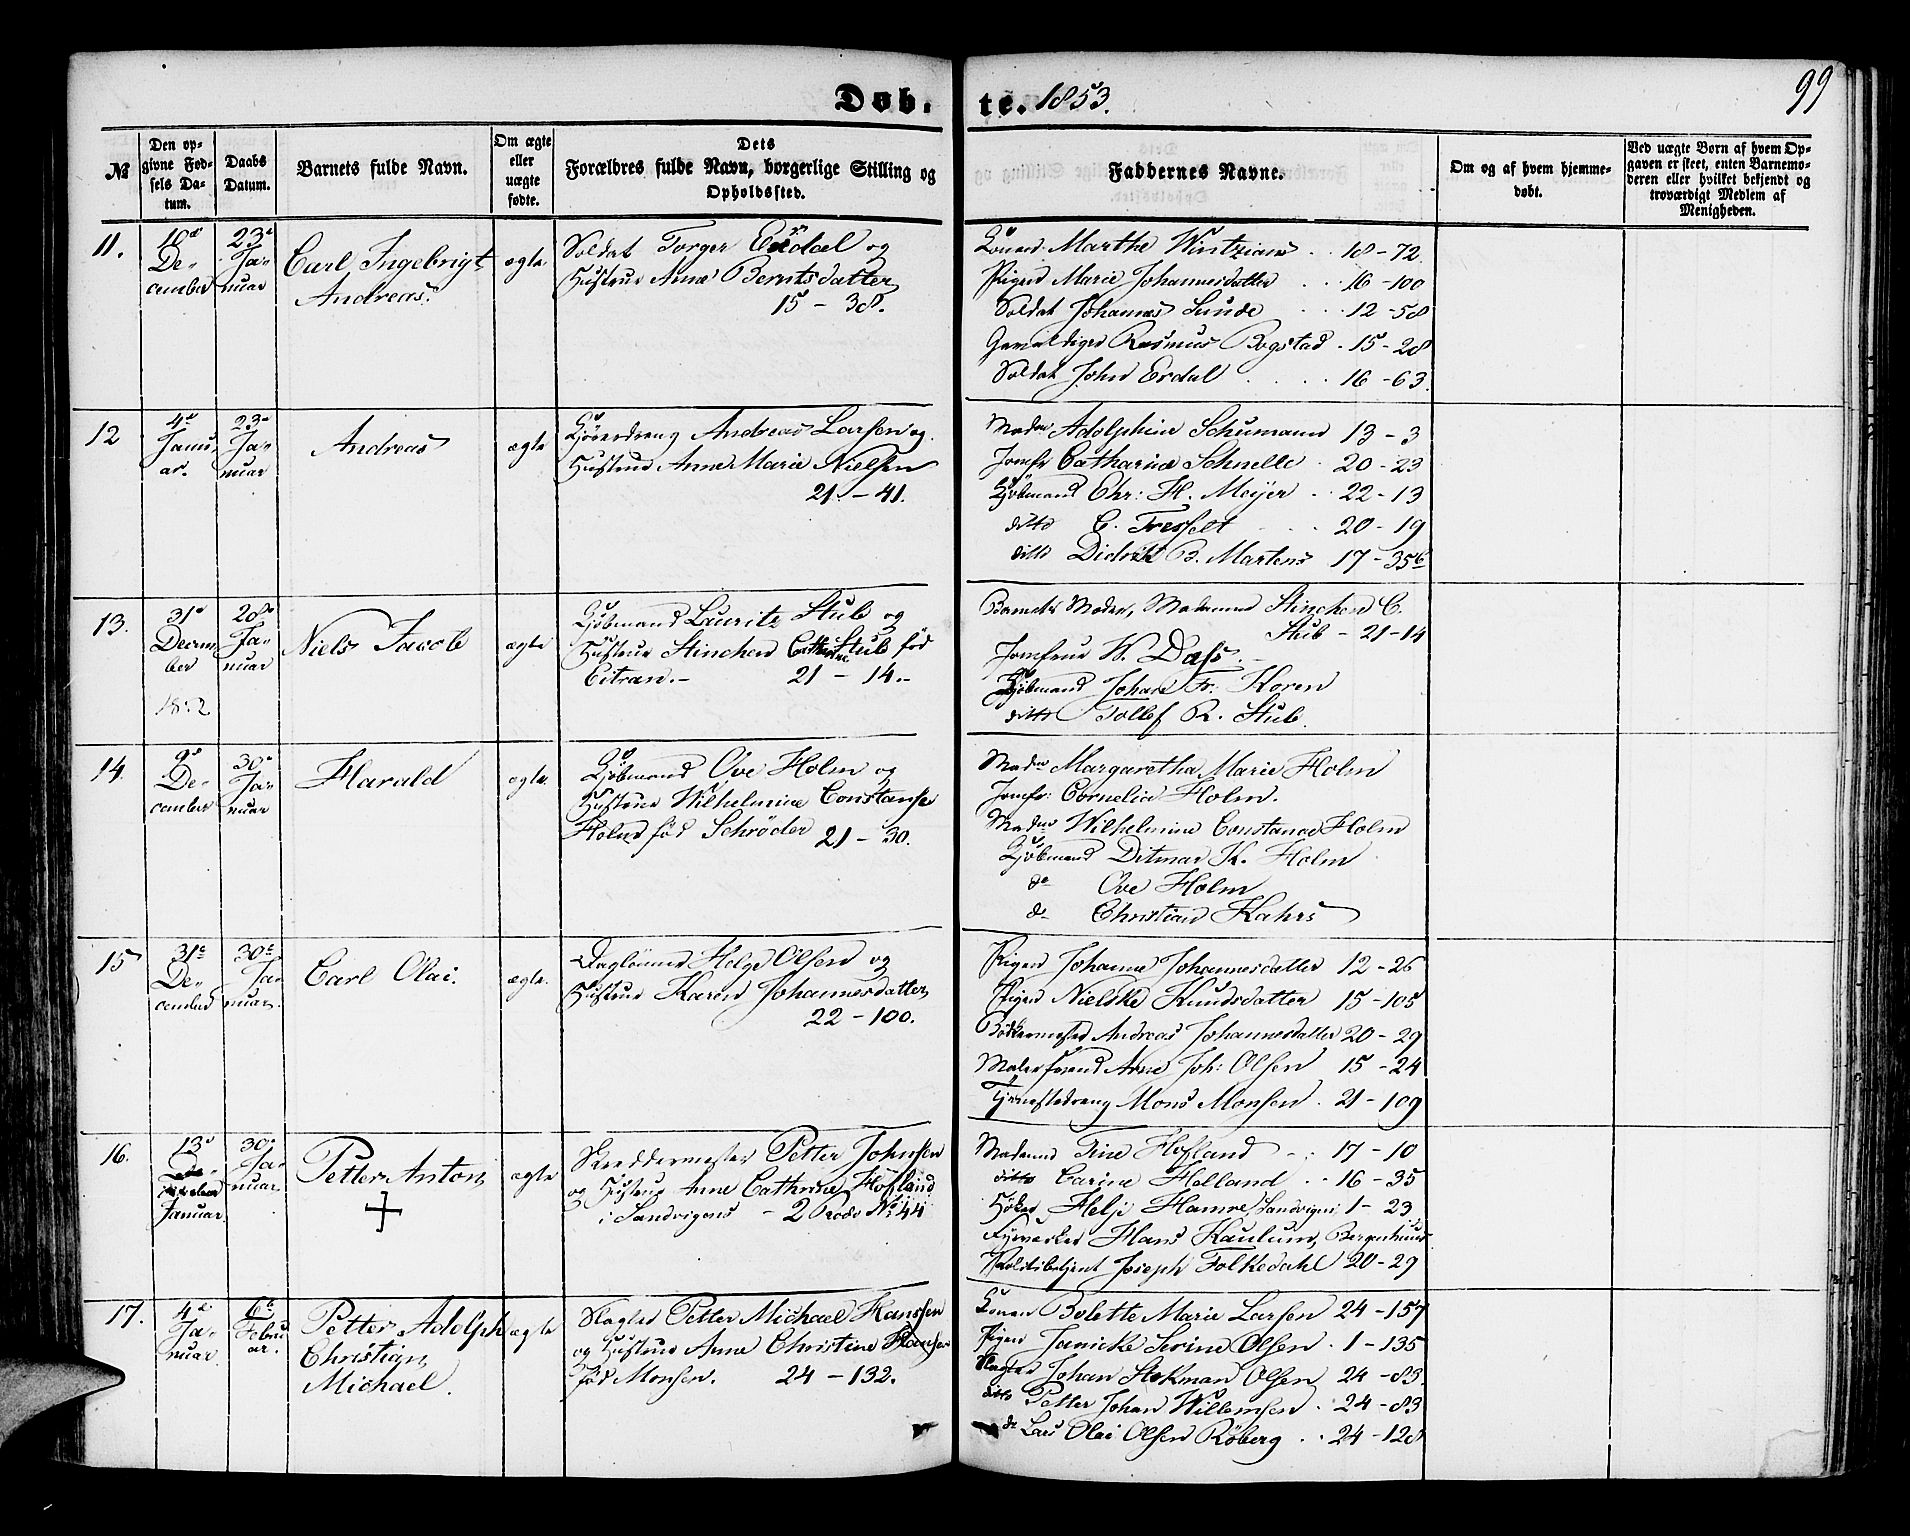 Døb-
te. 1853.
99
№
Den op-
givne Fød-
sels Da-
tum.
Daabs
Datum.
Barnets fulde Navn.
Om ægte
eller
uægte
fødte.
Dets
Forældres fulde Navn, borgerlige Stilling og
Opholdssted.
Faddernes Navne.
Om og af hvem hjemme-
døbt.
Ved uægte Børn af hvem Op-
gaven er skeet, enten Barnemo-
deren eller hvilket bekjendt og
troværdigt Medlem af
Menigheden.
11.
10de
De-
cember
23de
Ja-
nuar
Carl Ingebrigt
Andreas.
ægte
Soldat Torger Erdal og
Hustrue Anne Berntsdatter
15 - 38.
Konen Marthe Wintziane . . 18 - 72.
Pigen Marie Johannesdatter . . . 16 - 100
Soldat Johannes Sunde . . . 12 - 58
Gevaldiger Rasmus Bogstad . 15 - 28
Soldat John Erdal . . . . 16 - 63.
12
4de
Janu-
ar.
23de
Ja-
nuar
Andreas
ægte
Andreas Larsen og
Hustrue Anne Marie Nielsen
21. - 41.
Madme Adolphine Schumann 13 - 3
Jomfr Catharine Schnelle . 20 - 23
Kjøbmand Chr: H. Meijer . . 22 - 13
ditto C. Tresselt . . . 20 - 19
ditto Didrik B. Martens 17 - 35b
13.
31te
Decem-
ber
1852
28de
Ja-
nuar
Niels Jacob
ægte
Kjøbmand Lauritz Stub og
Hustrue Stinchen Cathrine Stub fød
Citran. - 21 - 14. -
Barnets Moder, Madame Stinchen C.
Stub - 21 - 14
Jomfrue W. Dass. -
Kjøbmand Johan Fr: Koren
ditto Tollef R. Stub.
14.
9de
De-
cember
30te
Ja-
nuar
Harald
ægte.
Kjøbmand Ove Holm og
Hustrue Wilhelmine Constanse
Holm fød Schrøder 21 - 30.
Madme Margaretha Marie Holm
Jomfr: Cornelia Holm.
Madme Wilhelmine Constance Holm
Kjøbmand Ditmar K. Holm
do Ove Holm
do Christian Kahrs
15
31te
De-
cember
30te
Ja-
nuar.
Carl Olai.
ægte.
Daglønner Helge Olsen og
Hustrue Karen Johannesdatter
22 - 100.
Pigen Johanne Johannesdatter 12 - 26
Pigen Nielske Knudsdatter 15 - 105
Bødkermester Andreas Johannesdatter 20 - 29
Malersvend Arne Joh: Olsen 15 - 24
Tjenestedreng Mons Monsen . 21 - 109
16.
13de
De-
Januar.
30te
Ja-
nuar.
Petter Anton
+
ægte
Skreddermester Petter Johnsen
og Hustrue Anne Cathrine Hofland
i Sandvigens - 2 Rode № 44
Madame Tine Hofland - . 17 - 10
ditto Carine Helland . . 16 - 35
Høker Helje Hamre, Sandvigen 1 - 23
Fyrverker Hans Kaulum, Bergenhuus
Politibetjent Joseph Folkedahl 20 - 29
17.
4de
Ja-
nuar.
6te
Febru-
ar.
Petter Adolph
Christian
Michael.
ægte
Slagter Petter Michael Hansen
og Hustrue Anne Christine Hansen
fød Monsen. 24 - 132.
Konen Bolette Marie Larsen 24 - 157
Pigen Janicke Serine Olsen . 1 - 135
Slagter Johan Stokman Olsen 24 - 83
ditto Petter Johan Willemsen . 24 - 83
do Lars Olai Olsen Røberg . . 24 - 128